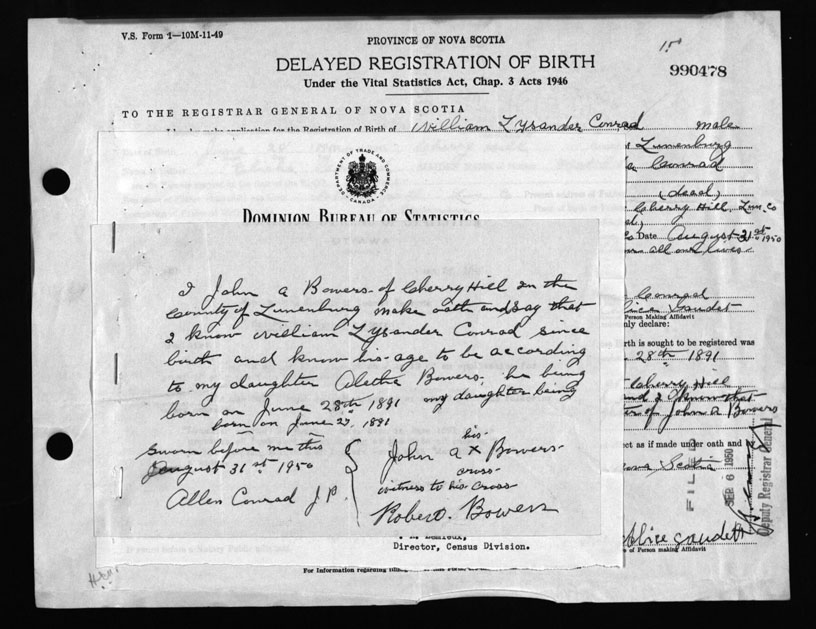 V.S. Form 1—10M-11-49
PROVINCE OF NOVA SCOTIA
15
DELAYED REGISTRATION OF BIRTH
990478
Under the Vital Statistics Act, Chap. 3 Acts 1946
TO THE REGISTRAR GENERAL OF NOVA SCOTIA
for the Registration of Birth of William Lysander Conrad male
Lunenburg
Conrad
(dead)
Cherry Hill, Lun. Co
Date August 31st 1950
all our lives
DEPARTMENT OF TRADE AND COMMERCE
CANADA
DOMINION BUREAU OF STATISTICS
OTTAWA
I John a Bowers of Cherry Hill in the
County of Lunenburg make oath and say that
I know William Lysander Conrad since
birth and know his age to be according
to my daughter Aletha Bowers, he being
born on June 28th 1891 my daughter being
born on June 27, 1891
Sworn before me this
August 31st 1950
Allen Conrad J.P.
his
John a x Bowers
cross
witness to his cross
Robert Bowers
Conrad
Alice Gaudet
Person Making Affidavit
declare:
birth is sought to be registered was
28th 1891
Cherry Hill
and I know that
of John a Bowers
ect as if made under oath and
Nova Scotia
FILED
SEP 6 1950
Deputy Registrar General
Alice Gaudet
of Person making Affidavit
Director, Census Division.
For Information regarding